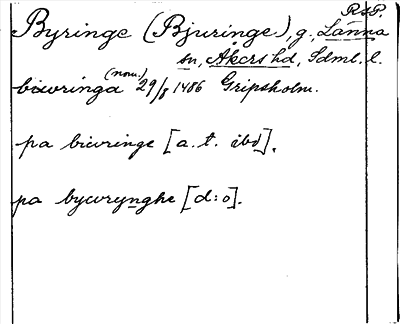 R.s.P.
Byringe (Bjuringe), g, Länna
sn, Åkers hd, Sdml. l.
biwringa (nom.) 29/8 1486 Gripsholm.
pa biwringe [a. t. ibd].
pa bywrynghe [d:o].